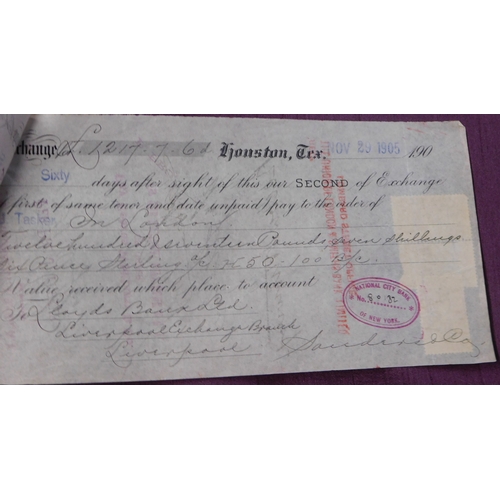 change for £1217-7-6d Houston, Tex. NOV 29 1905 190
Sixty days after sight of this our SECOND of Exchange
first of same tenor and date unpaid) pay to the order of
In London
Twelve hundred & seventeen Pounds seven shillings
six Pence Sterling a/c K50-100 B/C.
Value received which place to account
To Lloyds Bank Ltd.
Liverpool Exchange Branch
Liverpool
NATIONAL CITY BANK
No.
OF NEW YORK.
Sanders & Co.